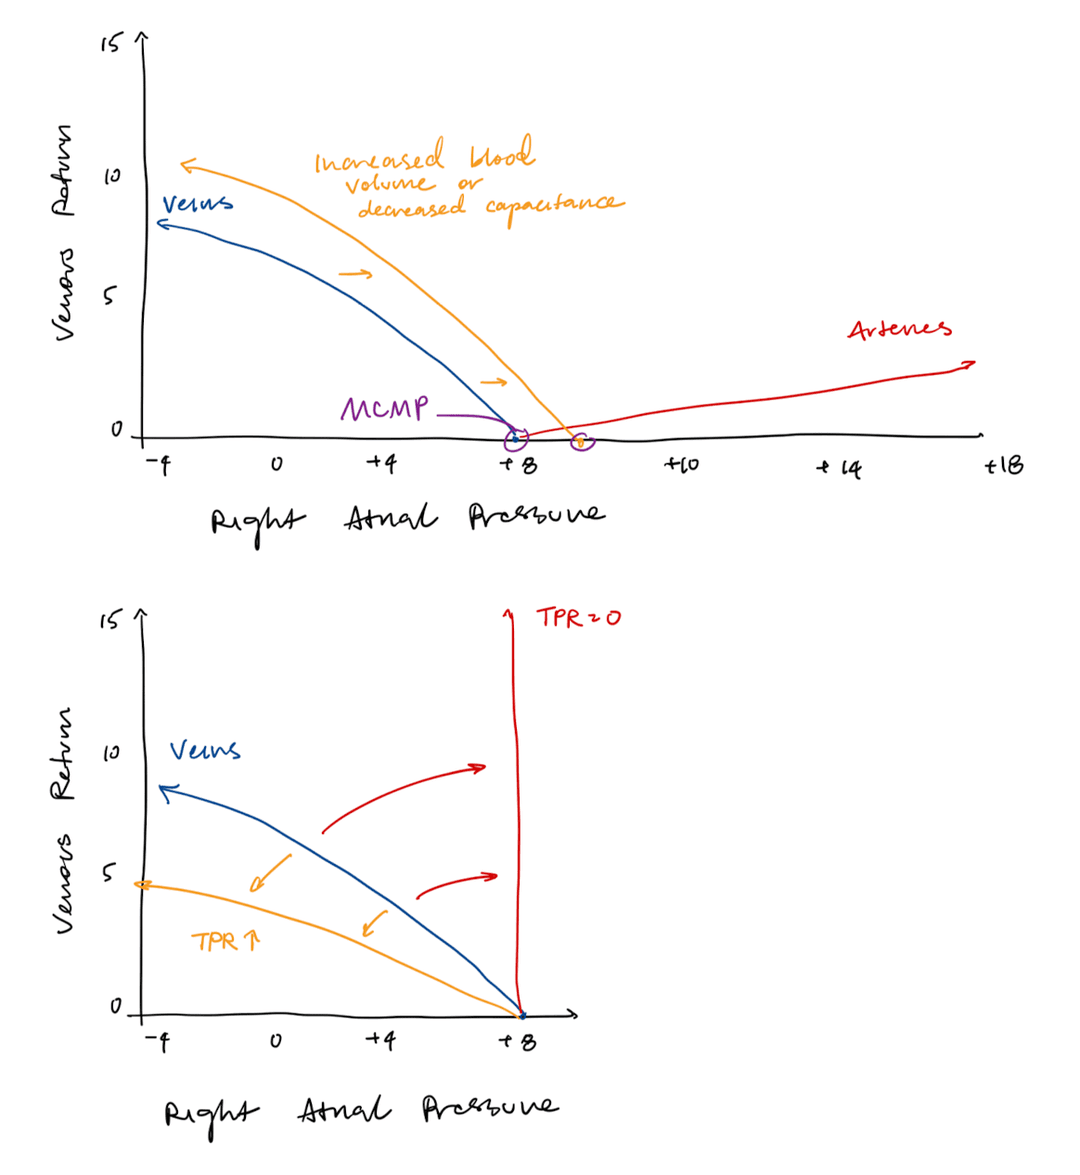 15
10
5
0
Venous Return
Increased blood
volume or
decreased capacitance
Veins
Arteries
MCMP
-4 0 +4 +8 +10 +14 +18
Right Atrial Pressure
15
10
5
0
Venous Return
TPR=0
Veins
TPR↑
-4 0 +4 +8
Right Atrial Pressure